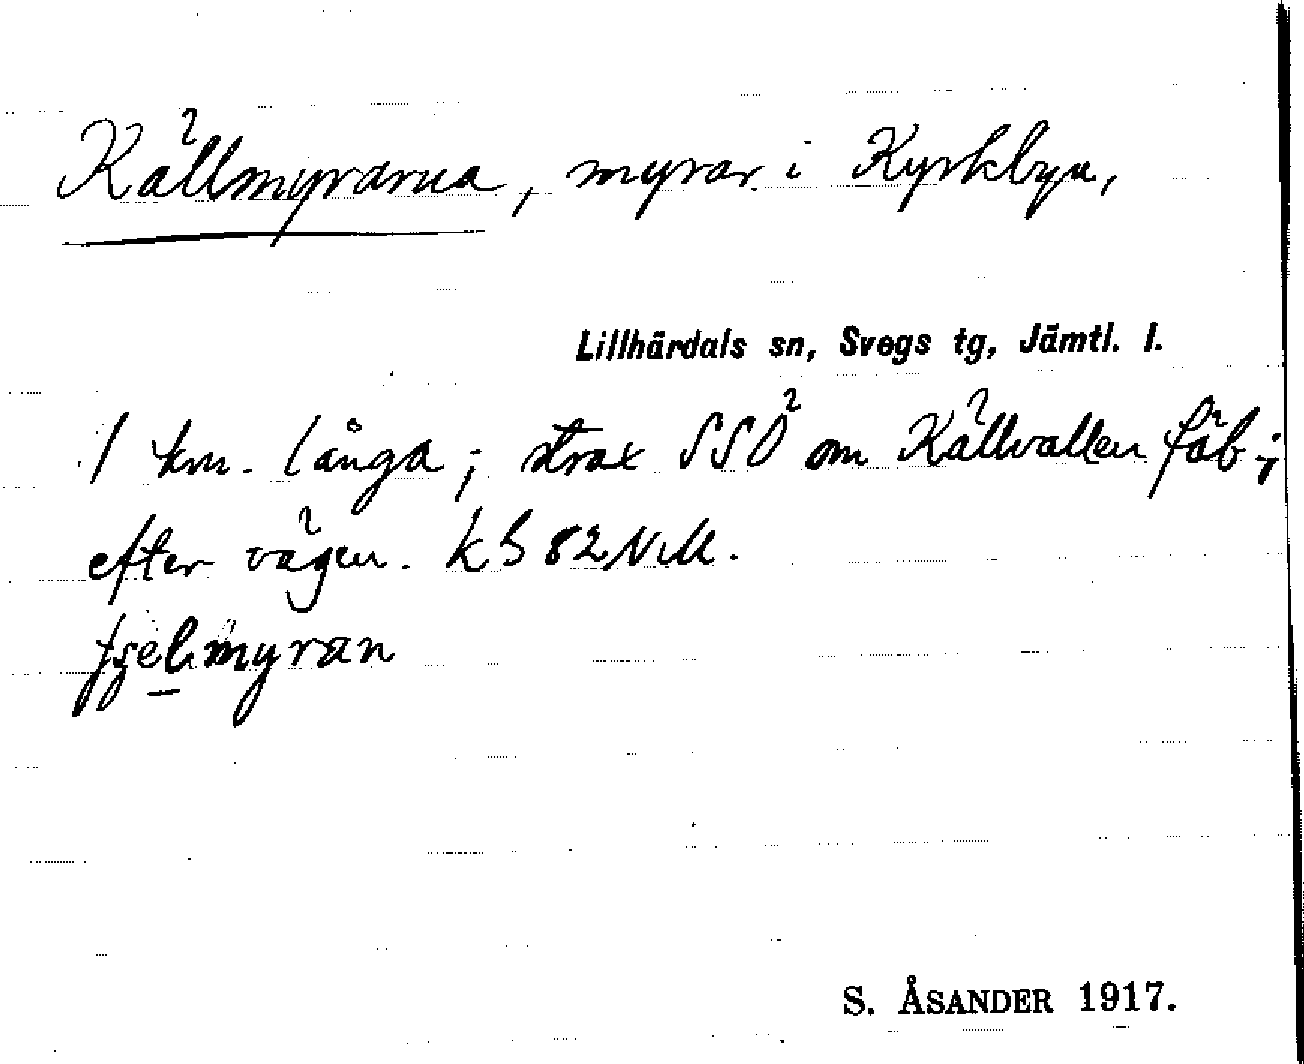 Källmyrarna, myrar i Kyrkbyn,
Lillhärdals sn, Svegs tg, Jämtl. l.
1 km. långa; strax SSÖ om Källvallen fäb.;
efter vägen. kh 82 NM.
S. ÅSANDER 1917.